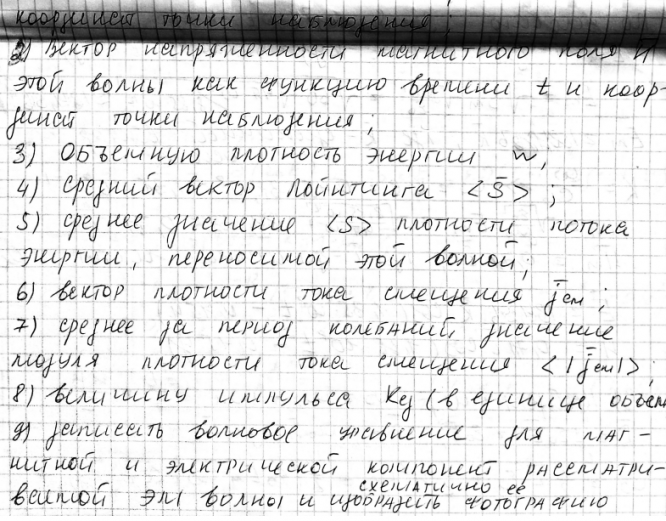 координат точки наблюдения;
2) вектор напряженности магнитного поля H
этой волны как функцию времени t и коор-
динат точки наблюдения;
3) объемную плотность энергии w,
4) средний вектор Пойнтинга <S̄> ;
5) среднее значение <S> плотности потока
энергии, переносимой этой волной;
6) вектор плотности тока смещения j̄см ;
7) среднее за период колебаний значение
модуля плотности тока смещения <|j̄см|>;
8) величину импульса Kед (в единице объем
9) записать волновое уравнение для маг-
нитной и электрической компонент рассматри-
ваемой эм волны и изобразить схематично ее фотографию